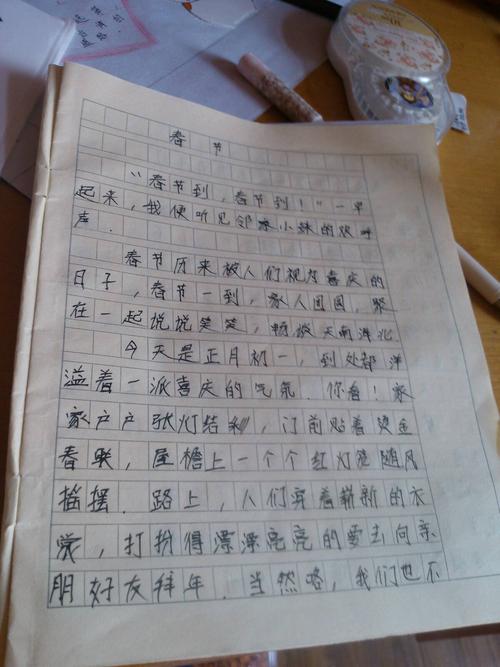 春节
“春节到，春节到！”一早
起来，我便听见邻家小妹的欢呼
声.
春节历来被人们视为喜庆的
日子，春节一到，家人团圆，聚
在一起说说笑笑，畅谈天南海北.
今天是正月初一，到处都洋
溢着一派喜庆的气氛.你看！家
家户户张灯结彩，门前贴着烫金
春联，屋檐上一个个红灯笼随风
摇摆.路上，人们穿着崭新的衣
裳，打扮得漂漂亮亮的要去向亲
朋好友拜年.当然咯，我们也不